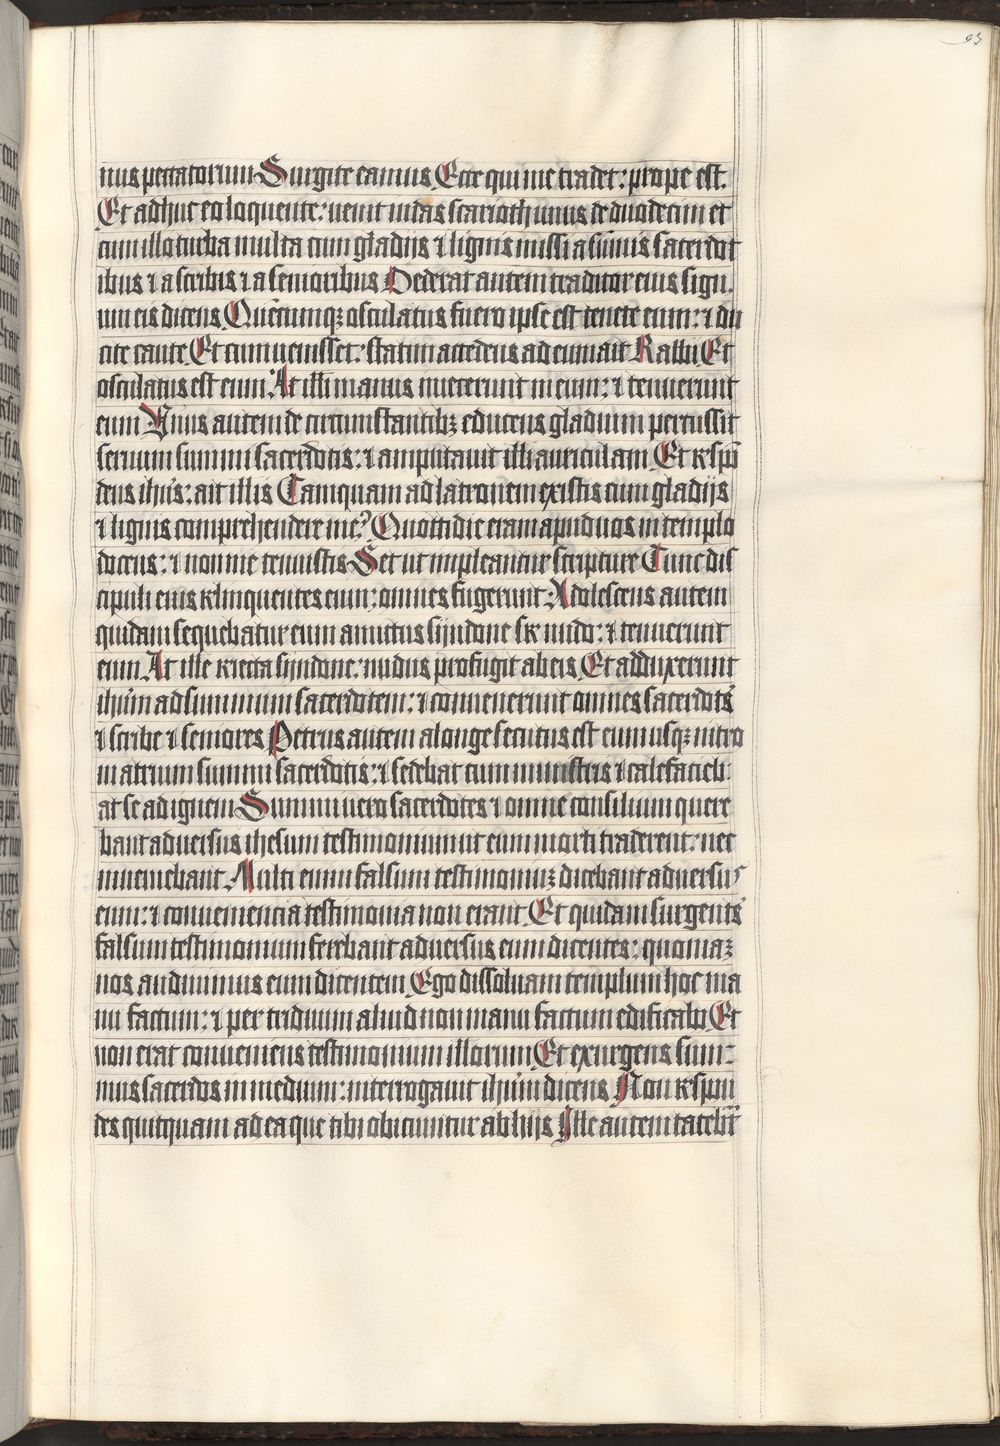 95
nus peccatorum Surgite eamus Ecce qui me tradet: prope est.
Et adhuc eo loquente: uenit iudas scarioth unus de duodecim et
cum illo turba multa cum gladijs ⁊ lignis missi a sūmis sacerdot
ibus ⁊ a scribis ⁊ a senioribus Dederat autem traditor eius sign.
um eis dicens Quēcumqꝫ osculatus fuero ipse est tenete eum: ⁊ du
cite caute Et cum uenisset: statim accedens ad eum ait Rabbi Et
osculatus est eum At illi manus iniecerunt in eum: ⁊ tenuerunt
eum Vnus autem de circumstantibꝫ educens gladium percussit
seruum summi sacerdotis: ⁊ amputauit illi auriculam Et respō
dens ihūs: ait illis Tamquam ad latronem existis cum gladijs
⁊ lignis comprehendere me? Quottidie eram apud uos in templo
docens: ⁊ non me tenuistis Set ut impleantur scripture Tunc dis
cipuli eius relinquentes eum: omnes fugerunt Adolescens autem
quidam sequebatur eum amictus sijndone sr nudo: ⁊ tenuerunt
eum At ille reiecta sijndone: nudus profugit ab eis Et adduxerunt
ihūm ad summum sacerdotem: ⁊ conuenerunt omnes sacerdots
⁊ scribe ⁊ seniores Petrus autem a longe secutus est eum usqꝫ intro
in atrium summi sacerdotis: ⁊ sedebat cum ministris ⁊ calefacieb:
at se ad ignem Summi uero sacerdotes ⁊ omne consilium quere
bant aduersus ihesum testimonium ut eum morti traderent: nec
inueniebant Multi enim falsum testimoniuꝫ dicebant aduersus
eum: ⁊ conueniencia testimonia non erant Et quidam surgents
falsum testimonium ferebant aduersus eum dicentes: quoniaꝫ
nos audiuimus eum dicentem Ego dissoluam templum hoc ma
nu factum: ⁊ per triduum aliud non manu factum edificabo Et
non erat conueniens testimonium illorum Et exurgens sum:
mus sacerdos in medium: interrogauit ihūm dicens Non respon
des quitquam ad ea que tibi obiciuntur ab hijs Ille autem tacebt